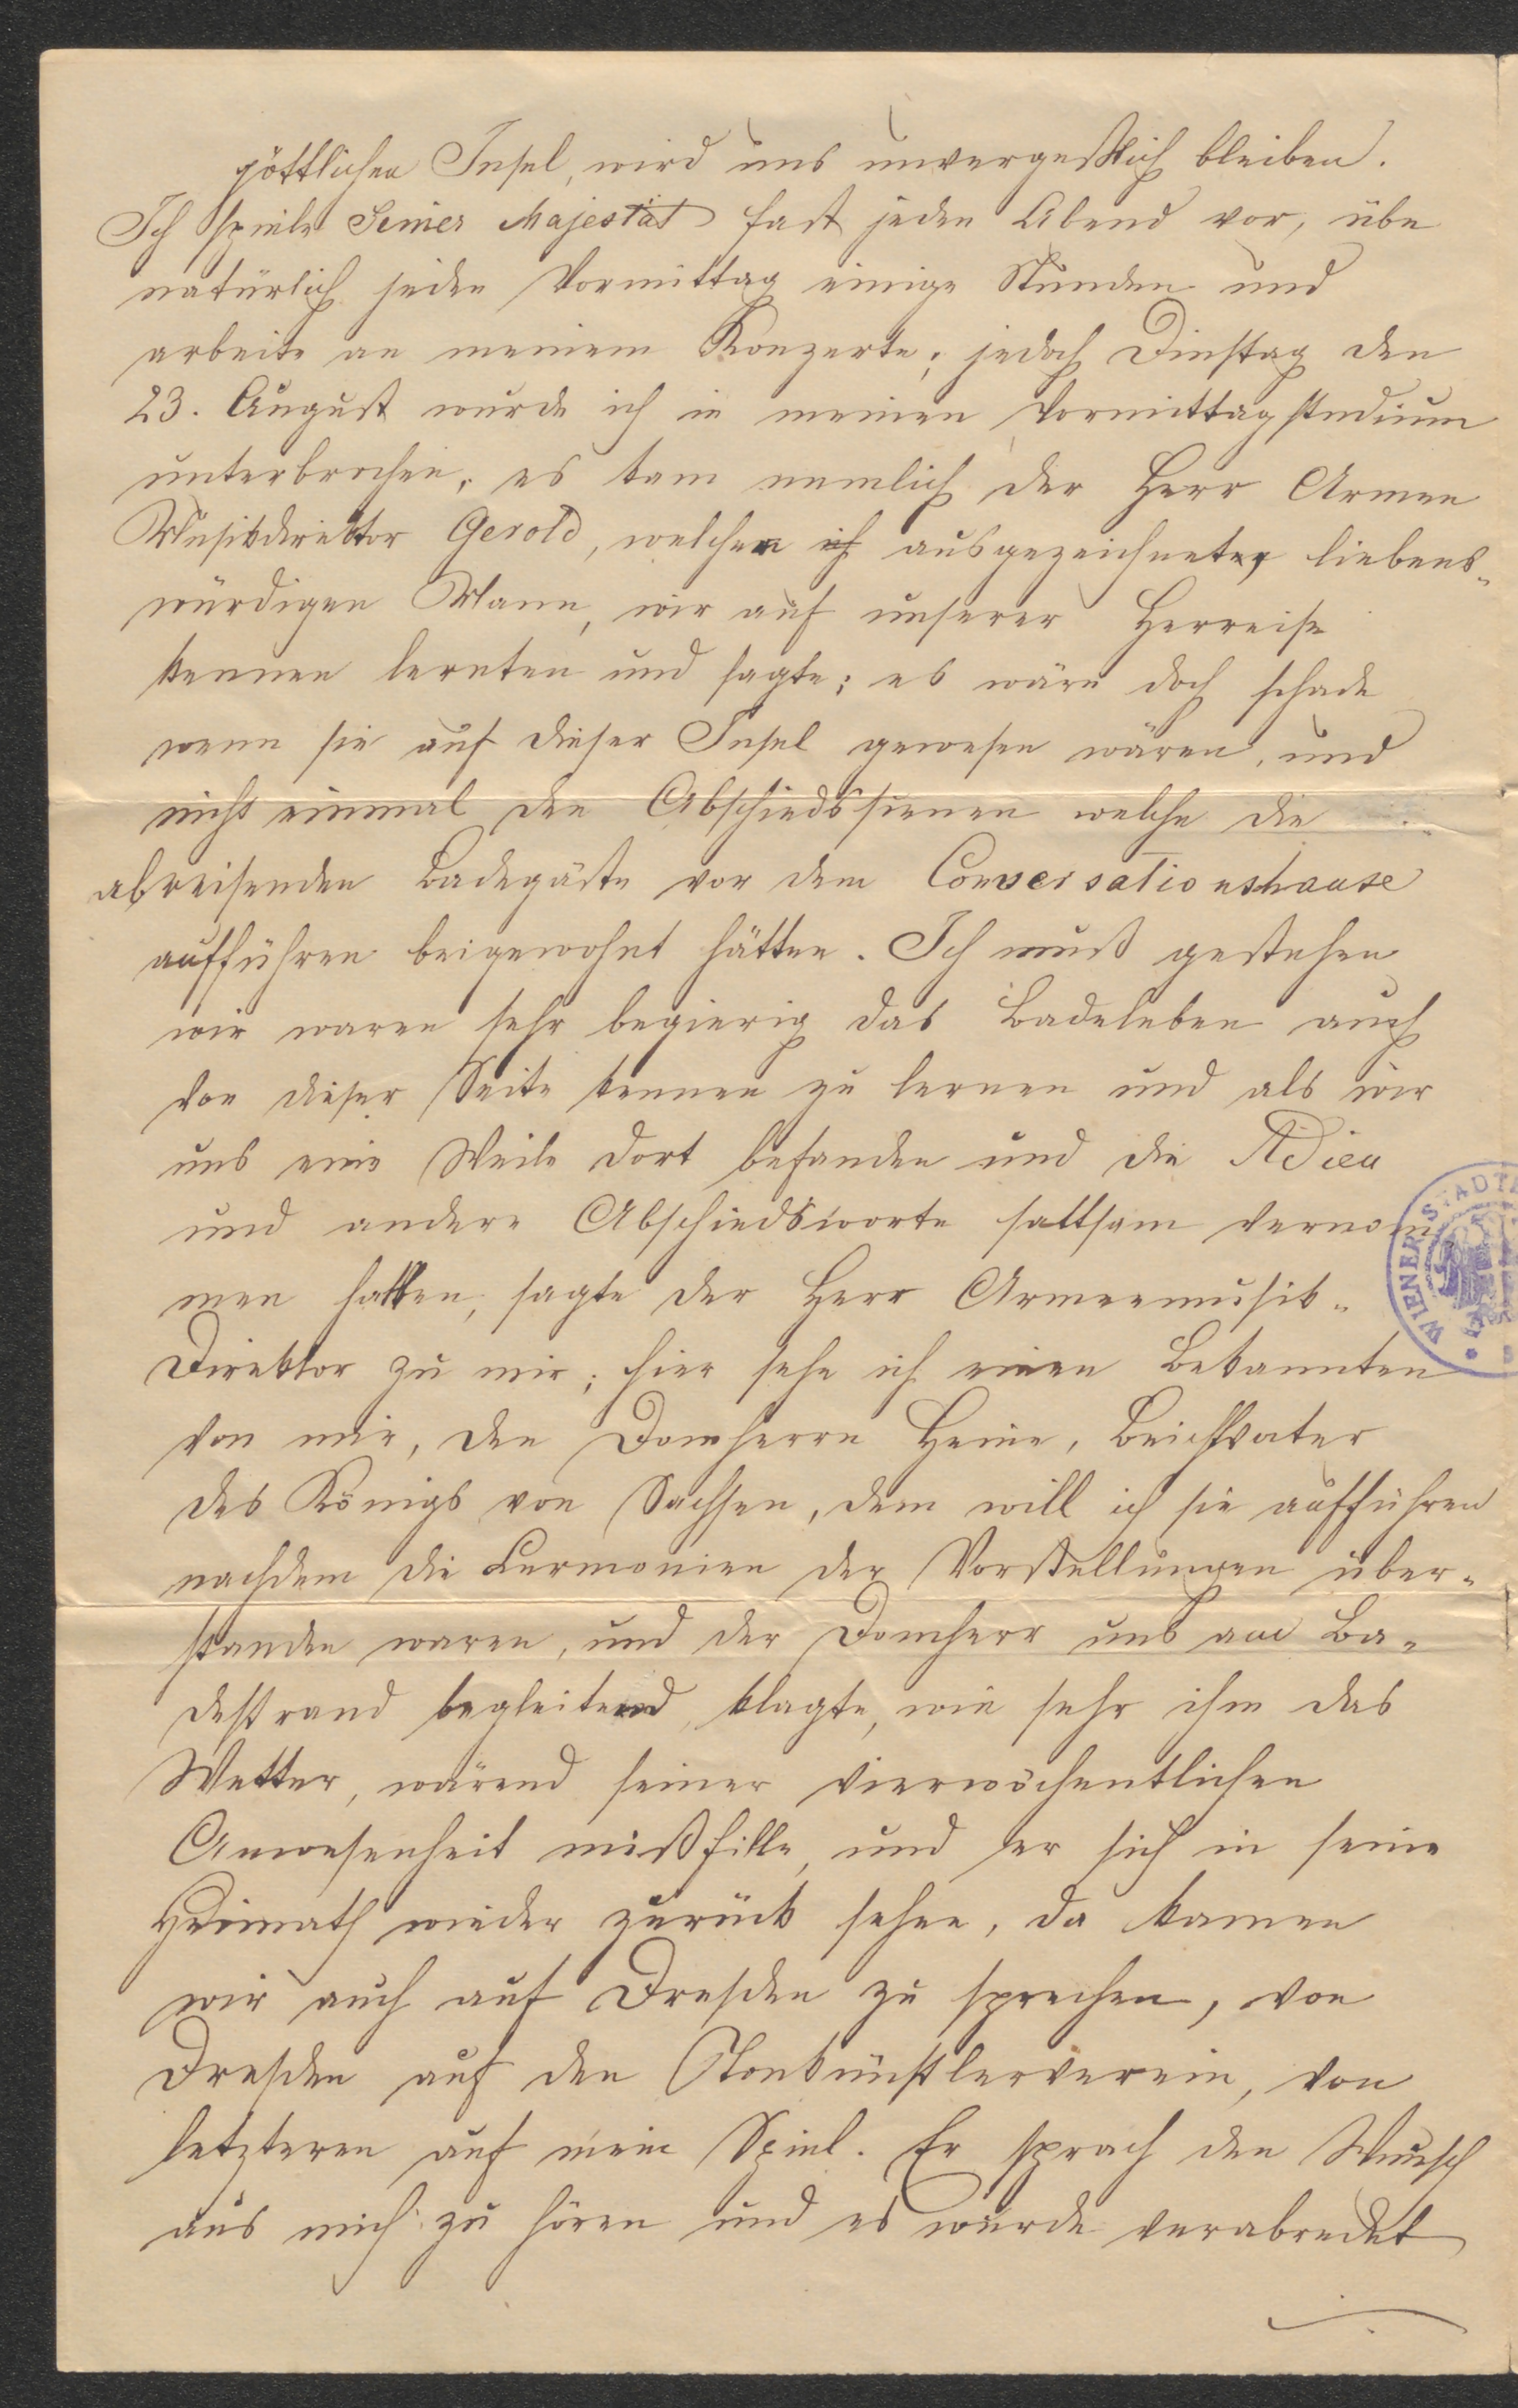 göttlichen Insel, wird uns unvergeßlich bleiben.
Ich spiele Seiner Majestät fast jeden Abend vor, übe
natürlich jeden Vormittag einige Stunden und
arbeite an meinem Konzerte; jedoch Dinstag den
23. August wurde ich in meinen Vormittagstudium
unterbrochen, es kam nemlich der Herr Armee
Musikdirektor Gerold, welchen ich ausgezeichneten liebens-
würdigen Mann, wir auf unserer Herreise
kennen lernten und sagte; es wäre doch schade
wenn sie auf dieser Insel gewesen wären, und
nicht einmal den Abschiedssienen welche die
abreisenden Badegäste vor dem Conversationshause
aufführen beigewohnt hätten. Ich muß gestehen
wir waren sehr begierig das Badeleben auch
von dieser Seite kennen zu lernen und als wir
uns eine Weile dort befanden und die Adieu
und andere Abschiedsworte sattsam vernom
men hatten, sagte der Herr Armeemusik-
Direktor zu mir; hier sehe ich einen Bekannten
von mir, den Domherrn Heine, Beichtvater
des Königs von Sachsen, dem will ich sie aufführen
nachdem die Cermonien der Vorstellungen über-
standen waren, und der Domherr uns am Ba-
destrand begleitend, klagte, wie sehr ihm das
Wetter, wärend seiner vierwöchentlichen
Anwesenheit mißfille, und er sich in seine
Heimath wieder zurück sehne, da kamen
wir auch auf Dresden zu sprechen, von
Dresden auf den Tonkünstlerverein, von
letzteren auf mein Spiel. Er sprach den Wunsch
aus mich zu hören und es wurde verabredet
WIENER STADT